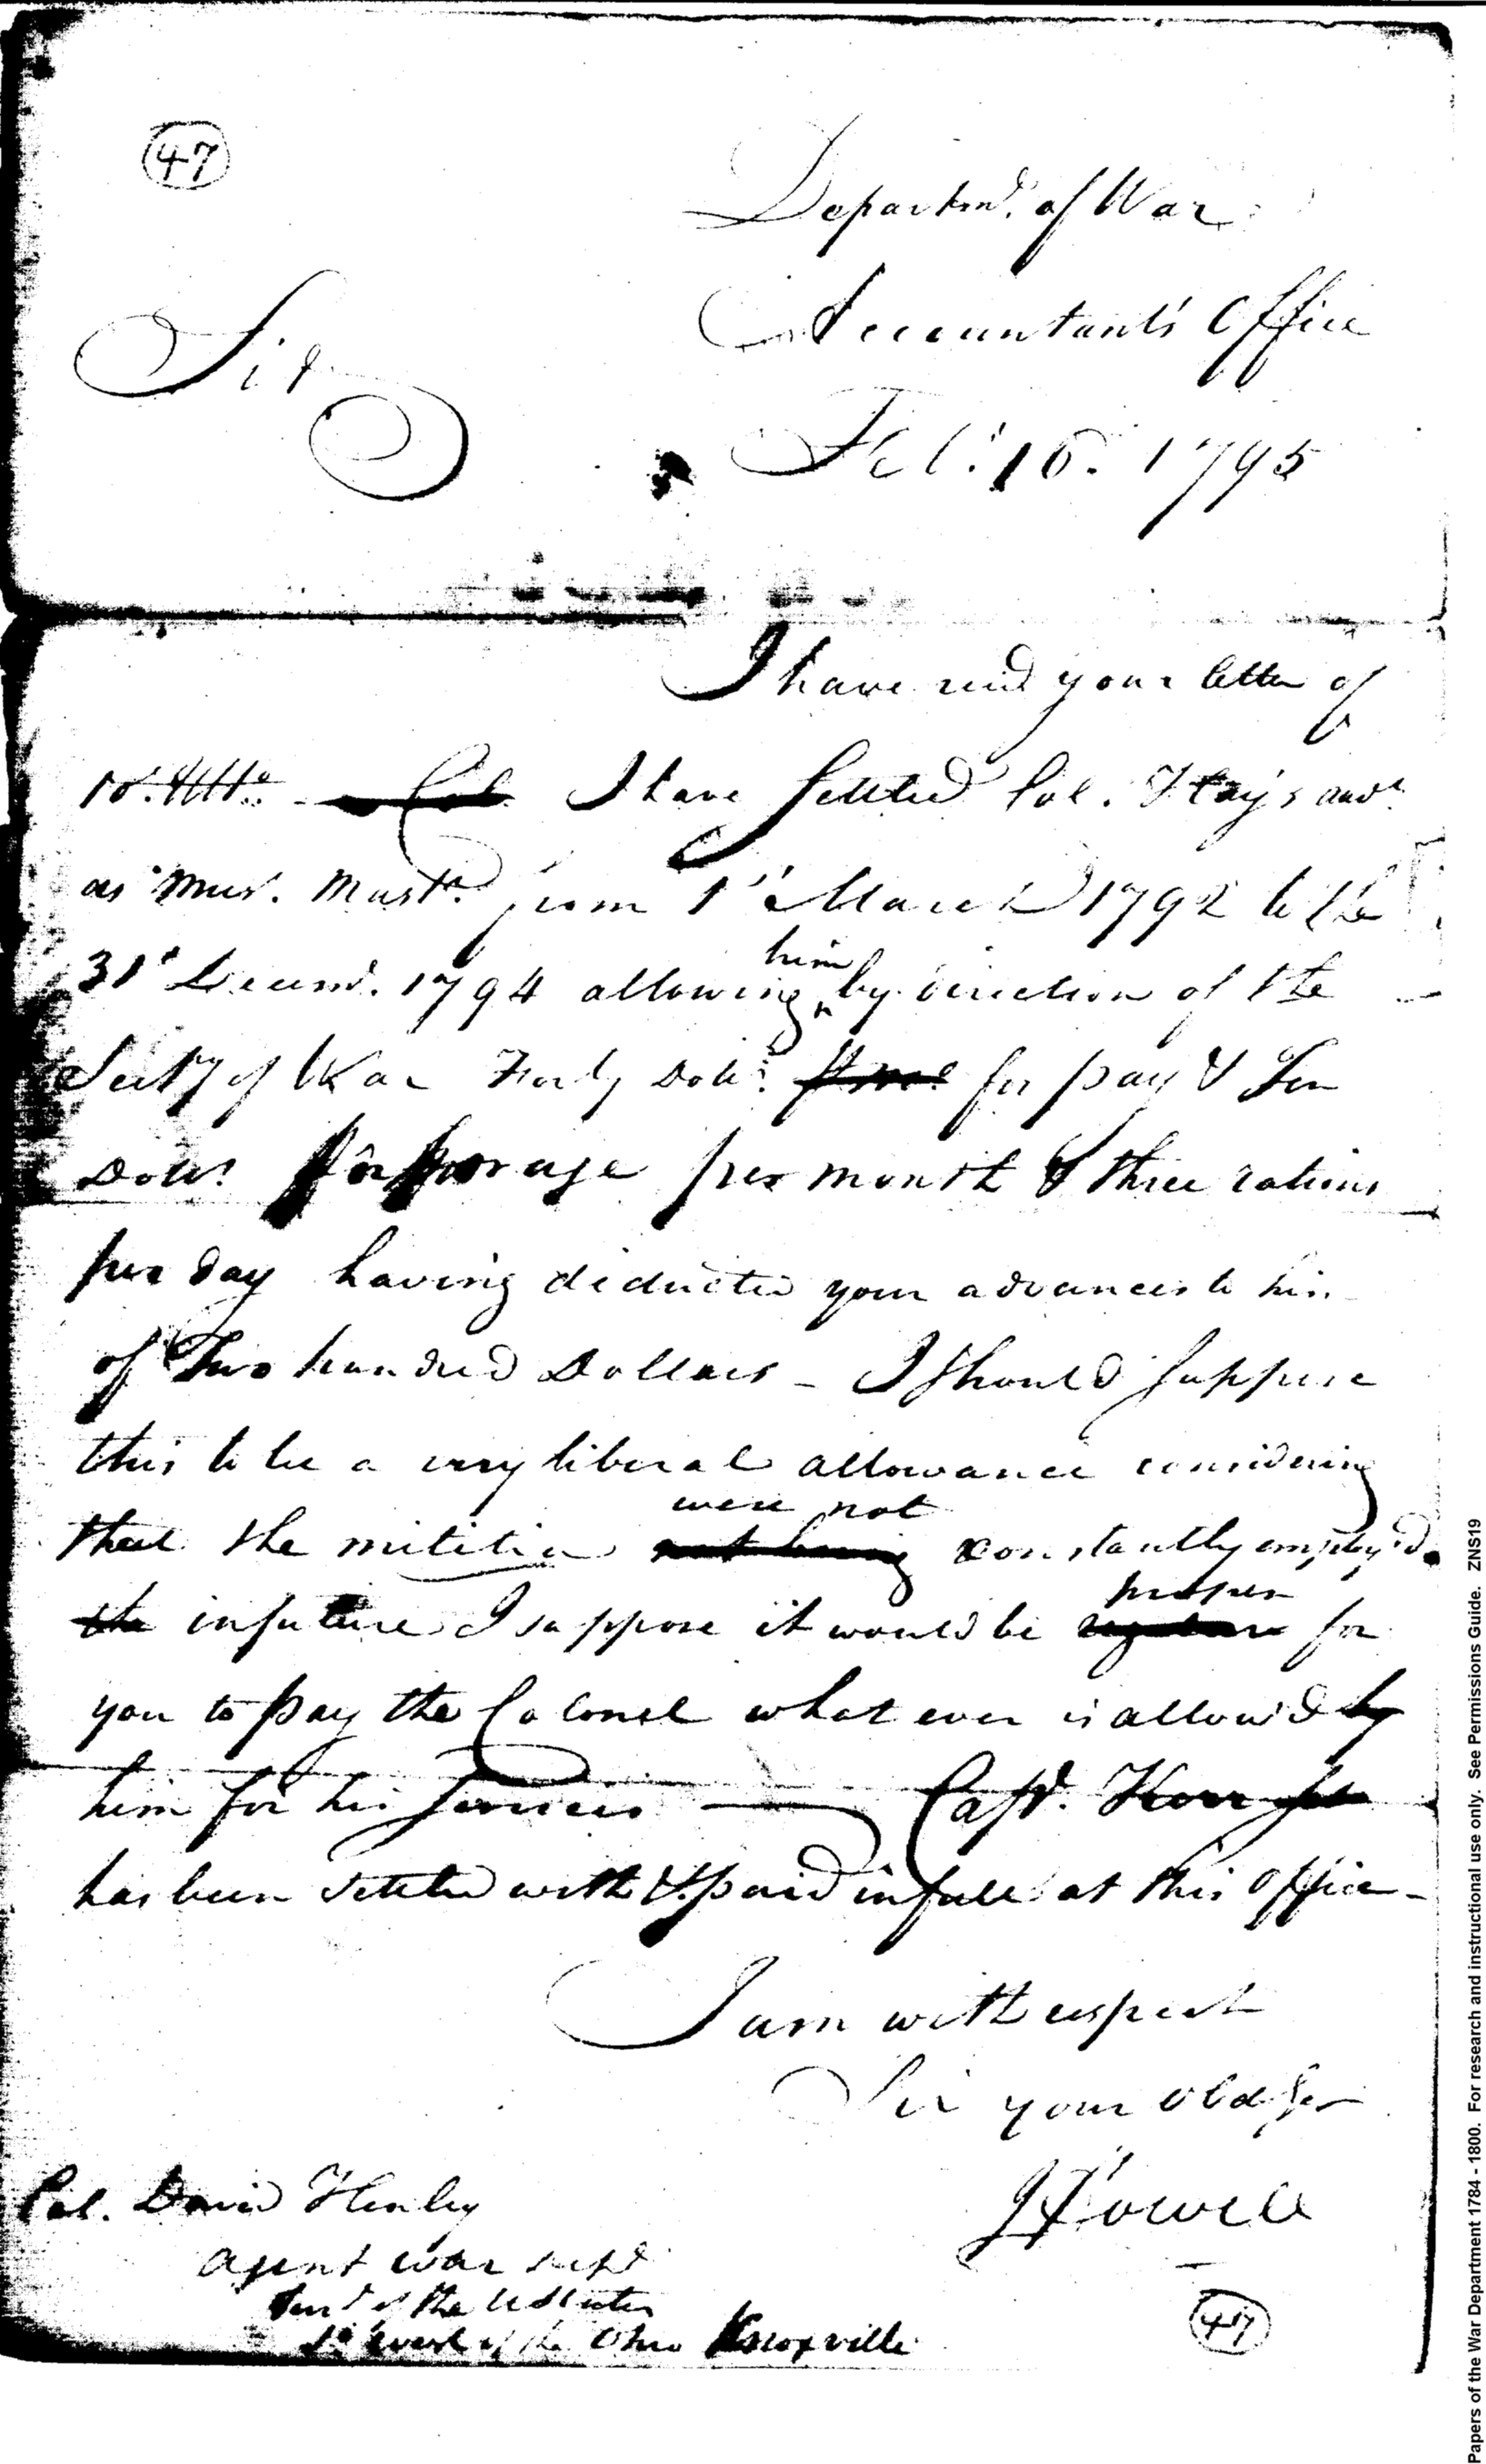 47
Departmt. of War
Accountant's Office
Sir
Feb. 16. 1795
I have recd your letter of
10. Ulto. Col. I have settled Col. Hays acct.
as Mus. Mastr. from 1st March 1792 to the
him
31st Decemr. 1794 allowing by direction of the
Secty of War Forty Dolls. for pay & Ten
Dolls. for forage per month & three rations
per day having deducted your advances to him
of Two hundred Dollars - I should suppose
this to be a very liberal allowance considering
were not
that the militia not being constantly employ'd.
proper
the in future I suppose it would be regular for
you to pay the Colonel what ever is allowed by
him for his services — Capt. Kerr
has been settled with & paid in full at this office -
I am with respect
Sir your obd Ser
J Howell
Col. David Henley
agent war dept
of the U States
So west of the Ohio Knoxville
47
Papers of the War Department 1784 - 1800. For research and instructional use only. See Permissions Guide. ZNS19